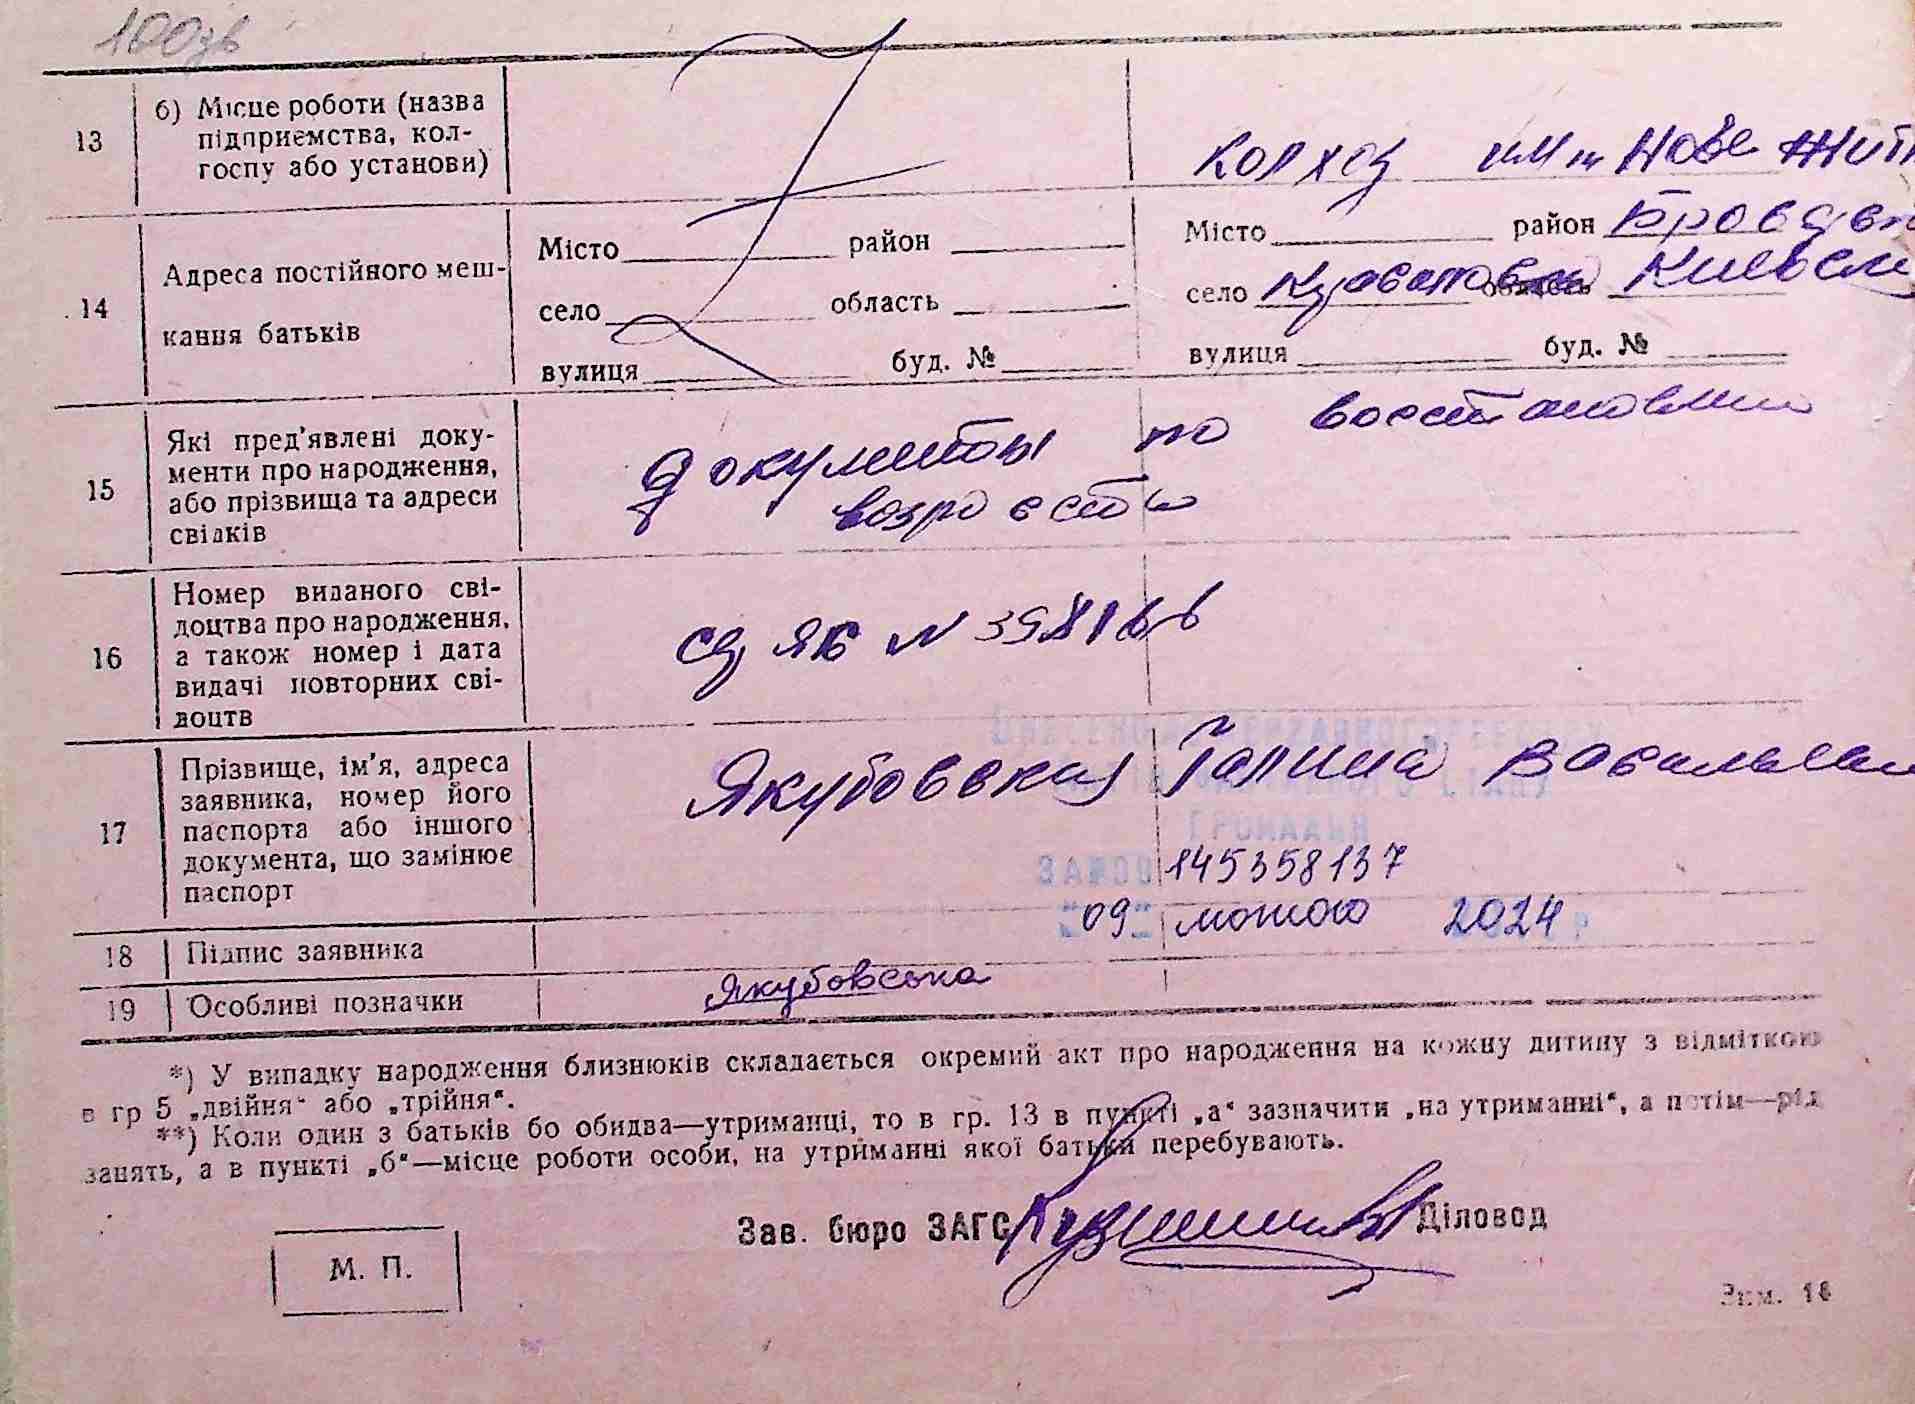 100зв
13
б) Місце роботи (назва
підприємства, кол-
госпу або установи)
колхоз им Нове Жит
14
Адреса постійного меш-
кання батьків
Місто район
село область
вулиця буд. №
Місто район
село область Киевск
вулиця буд. №
15
Які пред'явлені доку-
менти про народження,
або прізвища та адреси
свідків
Документы по
возраста
16
Номер виданого сві-
доцтва про народження,
а також номер і дата
видачі повторних сві-
доцтв
св ЯК N
17
Прізвище, ім'я, адреса
заявника, номер його
паспорта або іншого
документа, що замінює
паспорт
Якубовская Галина
ВНЕСЕНО ДО ДЕРЖАВНОГО РЕЄСТРУ
АКТІВ ЦИВІЛЬНОГО СТАНУ
ГРОМАДЯН
145358137
"09" лютого 2024 р
18
Підпис заявника
Якубовська
19
Особливі позначки
*) У випадку народження близнюків складається окремий акт про народження на кожну дитину з відміткою
в гр 5 „двійня“ або „трійня“.
**) Коли один з батьків бо обидва—утриманці, то в гр. 13 в пункті „а“ зазначити „на утриманні“, а потім—рід
занять, а в пункті „б“—місце роботи особи, на утриманні якої батьки перебувають.
Зав. бюро ЗАГС Діловод
М. П.
Зам. 18